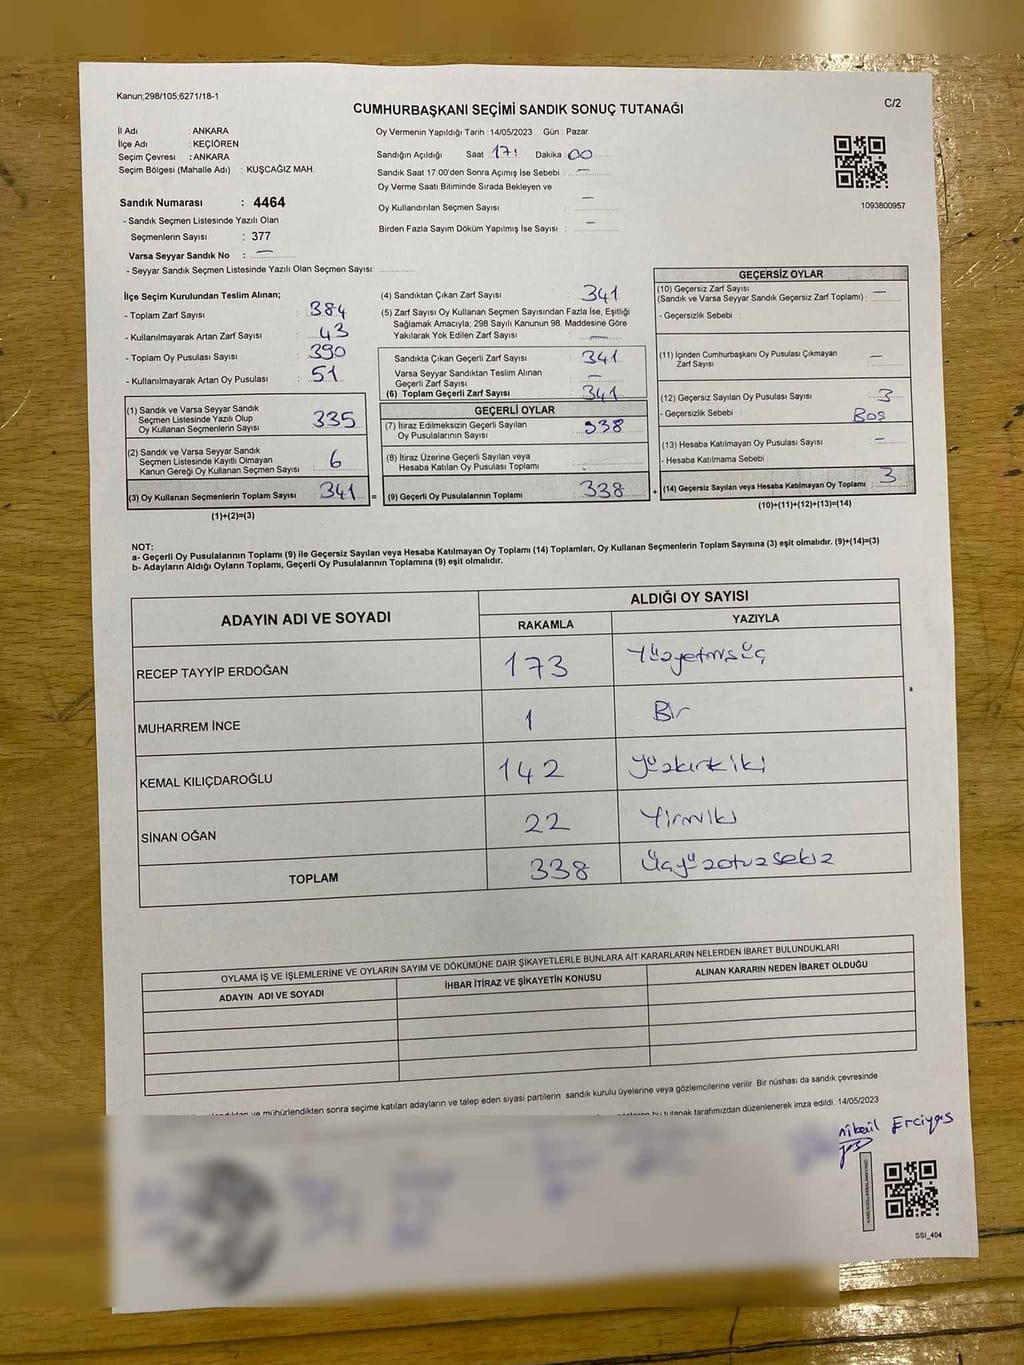 Kanun;298/105,6271/18-1
C/2
CUMHURBAŞKANI SEÇİMİ SANDIK SONUÇ TUTANAĞI
İl Adı : ANKARA
İlçe Adı : KEÇİÖREN
Seçim Çevresi : ANKARA
Seçim Bölgesi (Mahalle Adı) : KUŞCAĞIZ MAH.
Sandık Numarası : 4464
- Sandık Seçmen Listesinde Yazılı Olan
Seçmenlerin Sayısı : 377
Varsa Seyyar Sandık No : —
- Seyyar Sandık Seçmen Listesinde Yazılı Olan Seçmen Sayısı:
Oy Vermenin Yapıldığı Tarih : 14/05/2023 Gün : Pazar
Sandığın Açıldığı Saat 17: Dakika 00
Sandık Saat 17.00'den Sonra Açımış İse Sebebi : —
Oy Verme Saati Bitiminde Sırada Bekleyen ve
Oy Kullandırılan Seçmen Sayısı —
Birden Fazla Sayım Döküm Yapılmış İse Sayısı : —
1093800957
İlçe Seçim Kurulundan Teslim Alınan;
- Toplam Zarf Sayısı : 384
- Kullanılmayarak Artan Zarf Sayısı : 43
- Toplam Oy Pusulası Sayısı : 390
- Kullanılmayarak Artan Oy Pusulası : 51
(1) Sandık ve Varsa Seyyar Sandık
Seçmen Listesinde Yazılı Olup
Oy Kullanan Seçmenlerin Sayısı : 335
(2) Sandık ve Varsa Seyyar Sandık
Seçmen Listesinde Kayıtlı Olmayan
Kanun Gereği Oy Kullanan Seçmen Sayısı : 6
(3) Oy Kullanan Seçmenlerin Toplam Sayısı : 341 =
(1)+(2)=(3)
(4) Sandıktan Çıkan Zarf Sayısı : 341
(5) Zarf Sayısı Oy Kullanan Seçmen Sayısından Fazla İse, Eşitliği
Sağlamak Amacıyla, 298 Sayılı Kanunun 98. Maddesine Göre
Yakılarak Yok Edilen Zarf Sayısı : —
Sandıkta Çıkan Geçerli Zarf Sayısı : 341
Varsa Seyyar Sandıktan Teslim Alınan
Geçerli Zarf Sayısı : —
(6) Toplam Geçerli Zarf Sayısı : 341
GEÇERLİ OYLAR
(7) İtiraz Edilmeksizin Geçerli Sayılan
Oy Pusulalarının Sayısı : 338
(8) İtiraz Üzerine Geçerli Sayılan veya
Hesaba Katılan Oy Pusulası Toplamı :
(9) Geçerli Oy Pusulalarının Toplamı : 338 +
GEÇERSİZ OYLAR
(10) Geçersiz Zarf Sayısı
(Sandık ve Varsa Seyyar Sandık Geçersiz Zarf Toplamı) : —
- Geçersizlik Sebebi :
(11) İçinden Cumhurbaşkanı Oy Pusulası Çıkmayan
Zarf Sayısı : —
(12) Geçersiz Sayılan Oy Pusulası Sayısı : 3
- Geçersizlik Sebebi : Boş
(13) Hesaba Katılmayan Oy Pusulası Sayısı : —
- Hesaba Katılmama Sebebi :
(14) Geçersiz Sayılan veya Hesaba Katılmayan Oy Toplamı : 3
(10)+(11)+(12)+(13)=(14)
NOT:
a- Geçerli Oy Pusulalarının Toplamı (9) ile Geçersiz Sayılan veya Hesaba Katılmayan Oy Toplamı (14) Toplamları, Oy Kullanan Seçmenlerin Toplam Sayısına (3) eşit olmalıdır. (9)+(14)=(3)
b- Adayların Aldığı Oyların Toplamı, Geçerli Oy Pusulalarının Toplamına (9) eşit olmalıdır.
ADAYIN ADI VE SOYADI
ALDIĞI OY SAYISI
RAKAMLA YAZIYLA
RECEP TAYYİP ERDOĞAN 173 Yüzyetmişüç
MUHARREM İNCE 1 Bir
KEMAL KILIÇDAROĞLU 142 yüzkırkiki
SİNAN OĞAN 22 Yirmiiki
TOPLAM 338 Üçyüzotuzsekiz
OYLAMA İŞ VE İŞLEMLERİNE VE OYLARIN SAYIM VE DÖKÜMÜNE DAİR ŞİKAYETLERLE BUNLARA AİT KARARLARIN NELERDEN İBARET BULUNDUKLARI
ADAYIN ADI VE SOYADI İHBAR İTİRAZ VE ŞİKAYETİN KONUSU ALINAN KARARIN NEDEN İBARET OLDUĞU
ve mühürlendikten sonra seçime katılan adayların ve talep eden siyasi partilerin sandık kurulu üyelerine veya gözlemcilerine verilir. Bir nüshası da sandık çevresinde
bu tutanak tarafımızdan düzenlenerek imza edildi. 14/05/2023
Erciyas
SSI_404